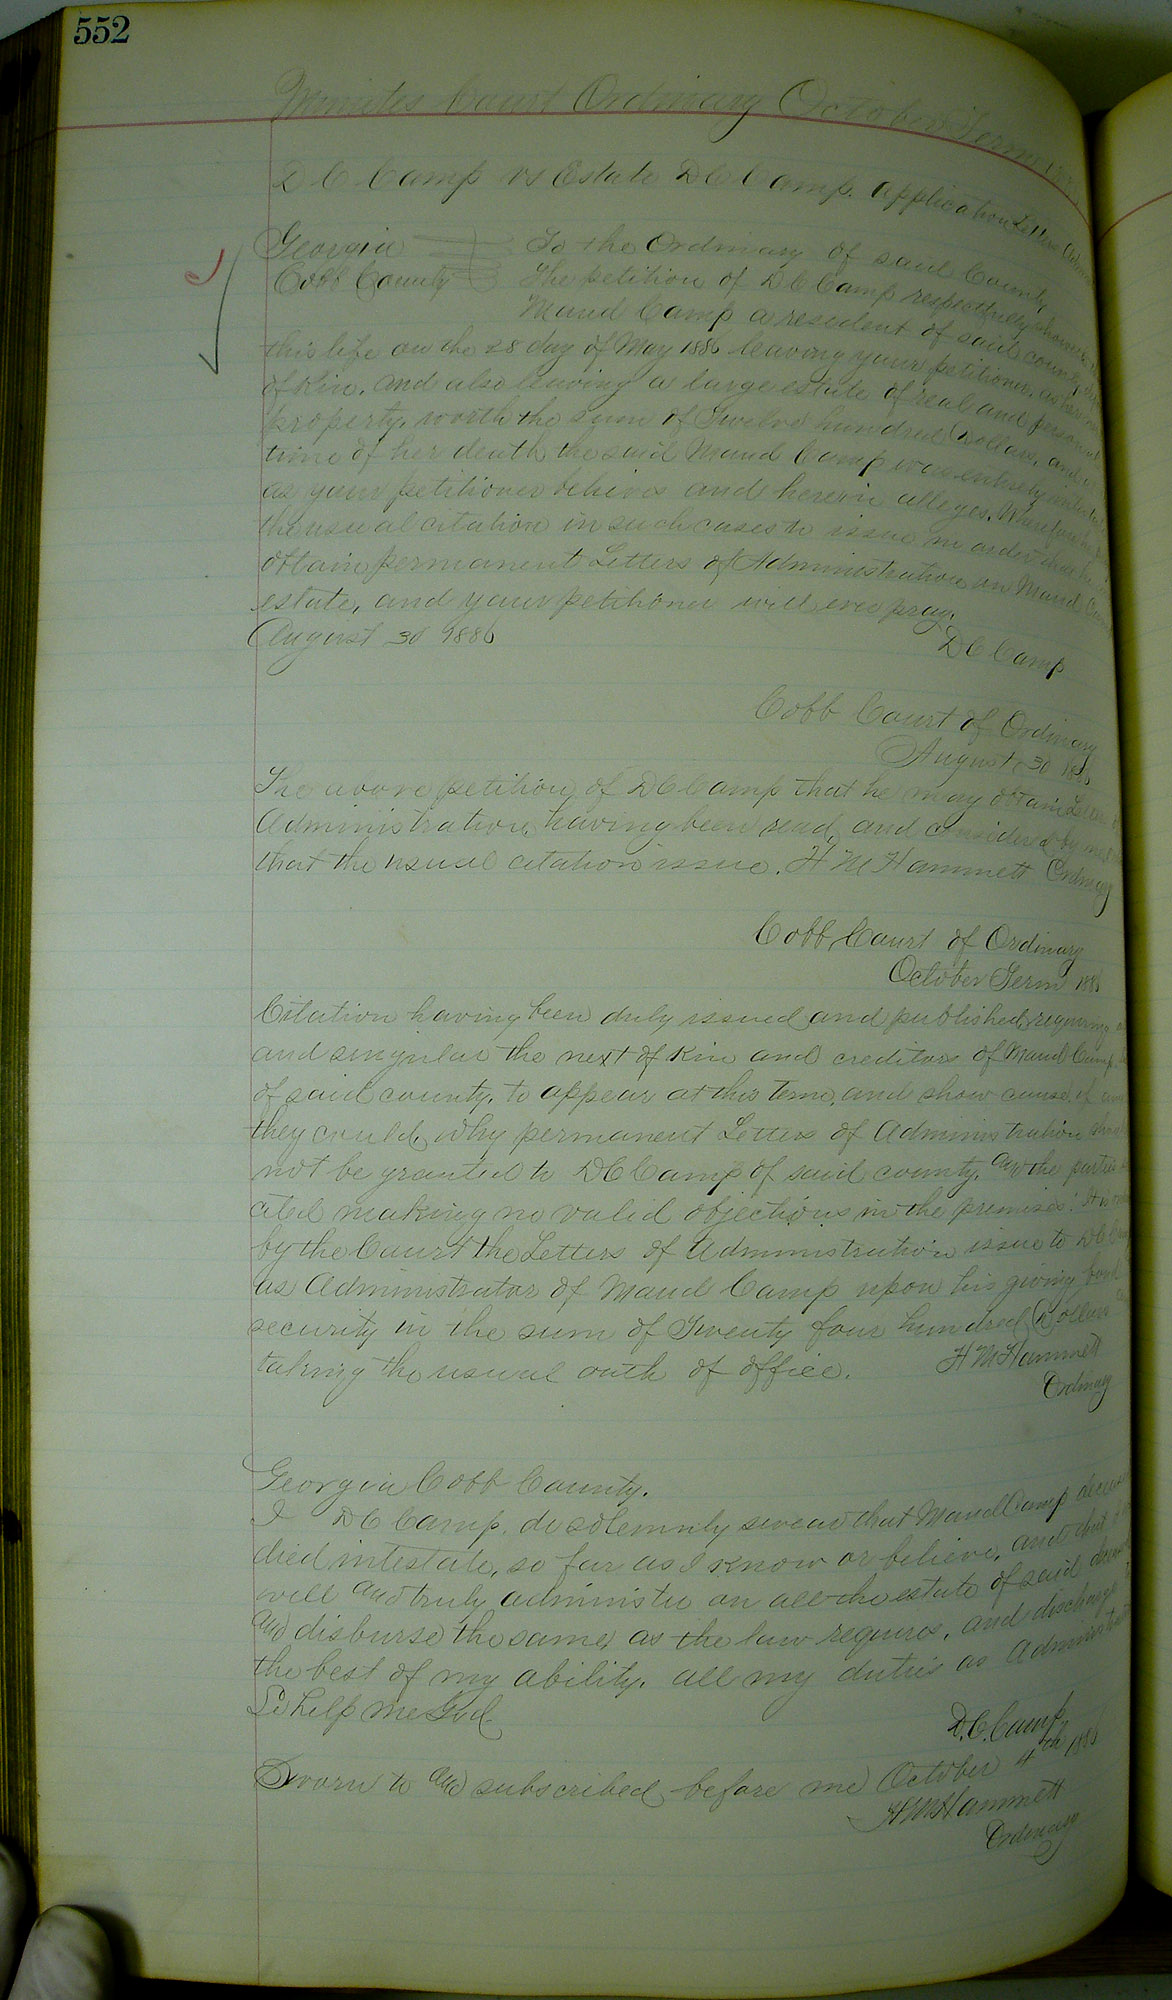 552
Minutes Court Ordinary October Term
D C Camp vs Estate D C Camp. Application Letters
Georgia To the Ordinary of said County
Cobb County The petition of D C Camp respectfully shows
Maud Camp a resident of said county
this life on the 28 day of May 1886 leaving your petitioner, as
of Kin. and also leaving a large estate of real and personal
property, worth the sum of Twelve hundred Dollars, and
time of her death the said Maud Camp was entirely
as your petitioner believes and herein alleges. Wherefore
the usual citation in such cases to issue in order that he
obtain permanent Letters of Administration on Maud
estate, and your petitioner will ever pray.
August 30 1886 D C Camp
Cobb Court of Ordinary
August 30 1886
The above petition of D C Camp that he may obtain Letters
Administration, having been read, and considered by me
that the usual citation issue. H M Hammett Ordinary
Cobb Court of Ordinary
October Term 1886
Citation having been duly issued and published requiring
and singular the next of Kin and creditors of Maud Camp
of said county, to appear at this Term, and show cause, if
they could, why permanent Letters of Administration
not be granted to D C Camp of said county, and the parties
cited making no valid objections in the premises: It is
by the Court the Letters of Administration issue to D C
as Administrator of Maud Camp upon his giving bond
security in the sum of Twenty four hundred Dollars
taking the usual oath of office. H M Hammett
Ordinary
Georgia Cobb County.
I D C Camp, do solemnly swear that Maud Camp
died intestate, so far as I know or believe, and that
will and truly administer on all the estate of said
and disburse the same, as the law requires, and discharge
the best of my ability, all my duties as
So help me God.
D. C. Camp
Sworn to and subscribed before me October 4th 1886
H M Hammett
Ordinary